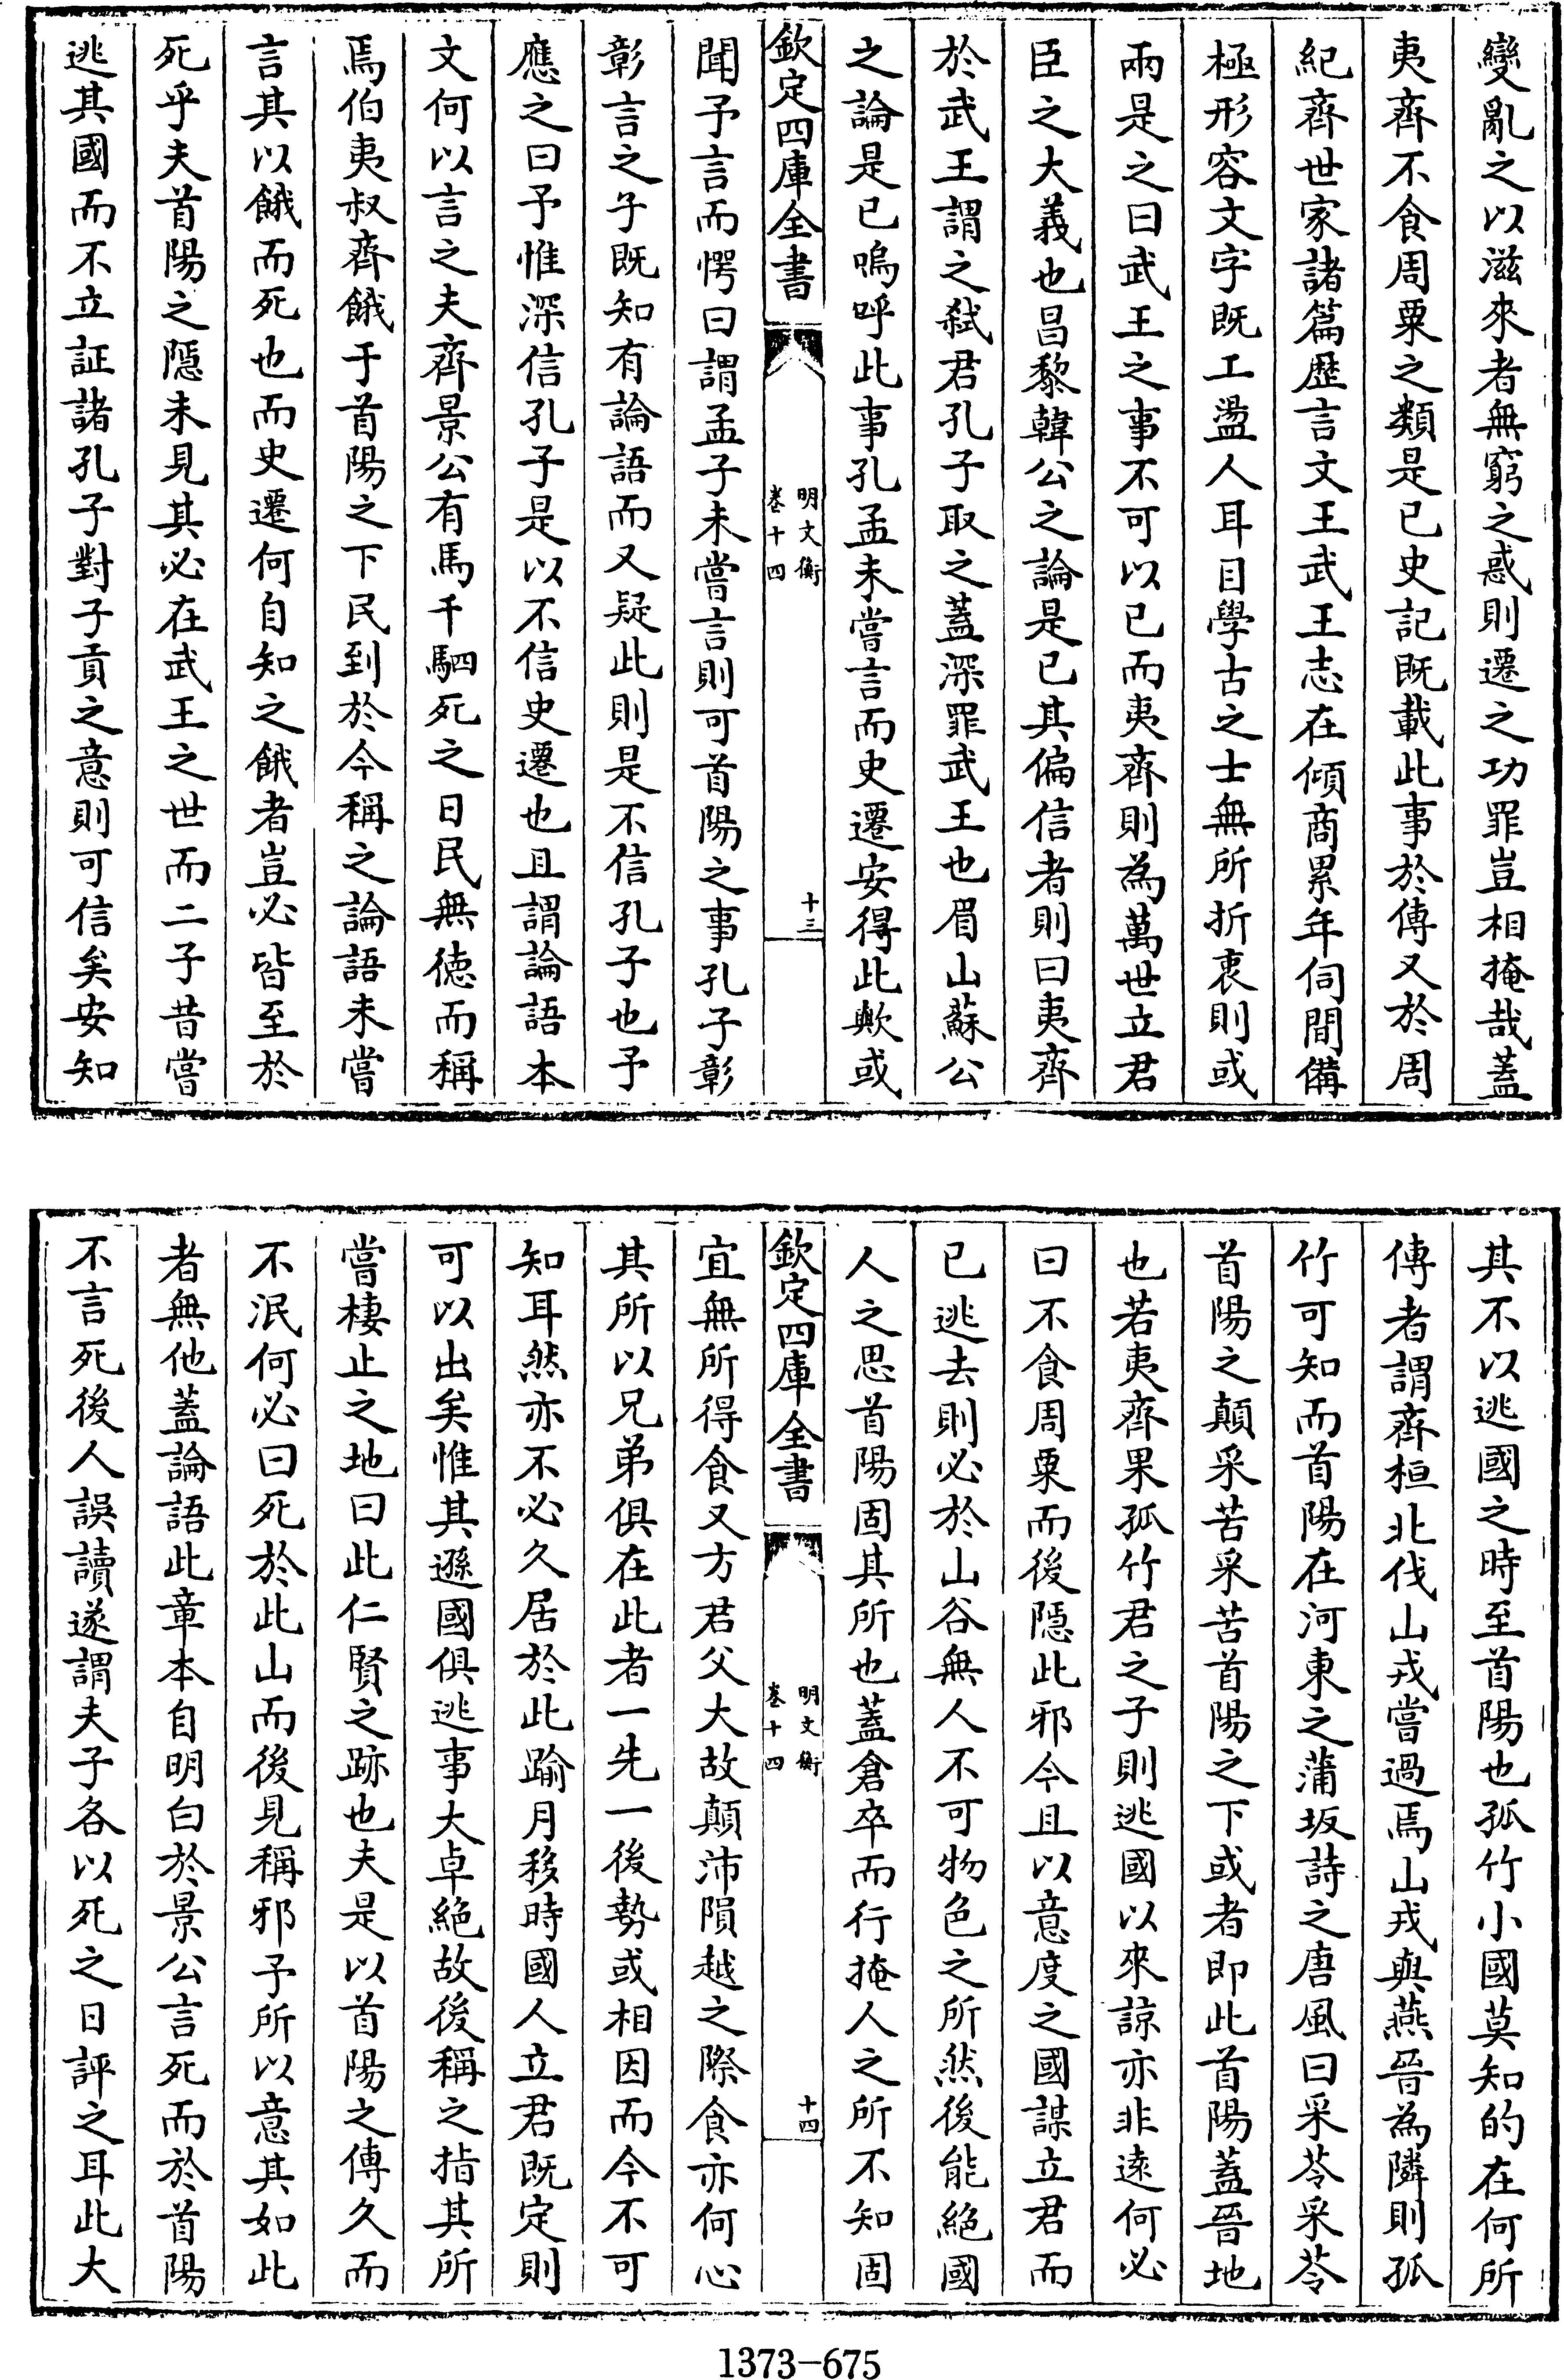 變亂之以滋來者無窮之惑則遷之功罪豈相掩哉蓋
夷齊不食周粟之類是已史記既載此事於傳又於周
紀齊世家諸篇歴言文王武王志在傾商累年伺間備
極形容文字既工盪人耳目學古之士無所折衷則或
兩是之曰武王之事不可以已而夷齊則為萬世立君
臣之大義也昌黎韓公之論是已其偏信者則曰夷齊
於武王謂之弑君孔子取之蓋深罪武王也眉山蘇公
之論是已嗚呼此事孔孟未嘗言而史遷安得此歟或
欽定四庫全書
明文衡
卷十四
十三
聞予言而愕曰謂孟子未嘗言則可首陽之事孔子彰
彰言之子既知有論語而又疑此則是不信孔子也予
應之曰予惟深信孔子是以不信史遷也且謂論語本
文何以言之夫齊景公有馬千駟死之日民無徳而稱
焉伯夷叔齊餓于首陽之下民到於今稱之論語未嘗
言其以餓而死也而史遷何自知之餓者豈必皆至於
死乎夫首陽之隱未見其必在武王之世而二子昔嘗
逃其國而不立証諸孔子對子貢之意則可信矣安知
其不以逃國之時至首陽也孤竹小國莫知的在何所
傳者謂齊桓北伐山戎嘗過焉山戎與燕晉為隣則孤
竹可知而首陽在河東之蒲坂詩之唐風曰采苓采苓
首陽之顛采苦采苦首陽之下或者即此首陽蓋晉地
也若夷齊果孤竹君之子則逃國以來諒亦非遠何必
曰不食周粟而後隱此邪今且以意度之國謀立君而
已逃去則必於山谷無人不可物色之所然後能絶國
人之思首陽固其所也蓋倉卒而行掩人之所不知固
欽定四庫全書
明文衡
卷十四
十四
宜無所得食又方君父大故顛沛隕越之際食亦何心
其所以兄弟俱在此者一先一後勢或相因而今不可
知耳然亦不必久居於此踰月移時國人立君既定則
可以出矣惟其遜國俱逃事大卓絶故後稱之指其所
嘗棲止之地曰此仁賢之跡也夫是以首陽之傳久而
不泯何必曰死於此山而後見稱邪予所以意其如此
者無他蓋論語此章本自明白於景公言死而於首陽
不言死後人誤讀遂謂夫子各以死之日評之耳此大
1373-675